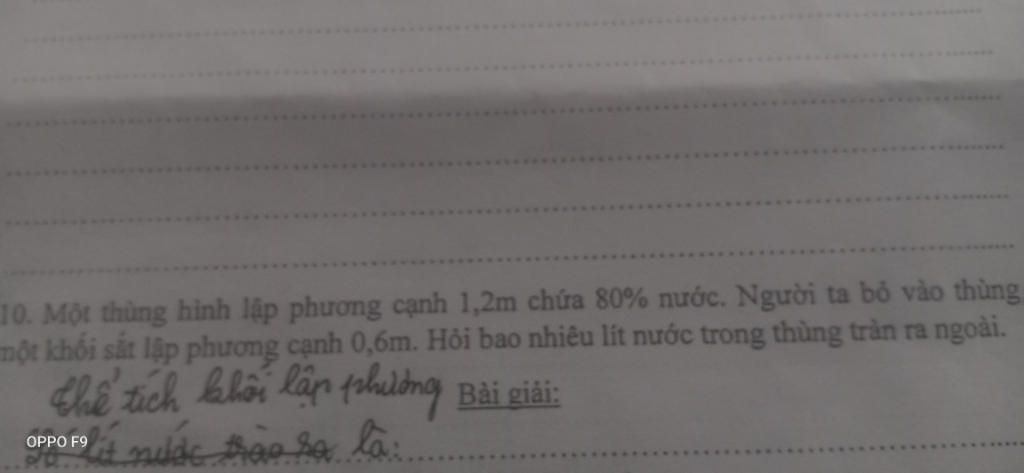 10. Một thùng hình lập phương cạnh 1,2m chứa 80% nước. Người ta bỏ vào thùng
một khối sắt lập phương cạnh 0,6m. Hỏi bao nhiêu lít nước trong thùng tràn ra ngoài.
thể tích khối lập phương Bài giải:
Số lít nước trào ra là:
OPPO F9